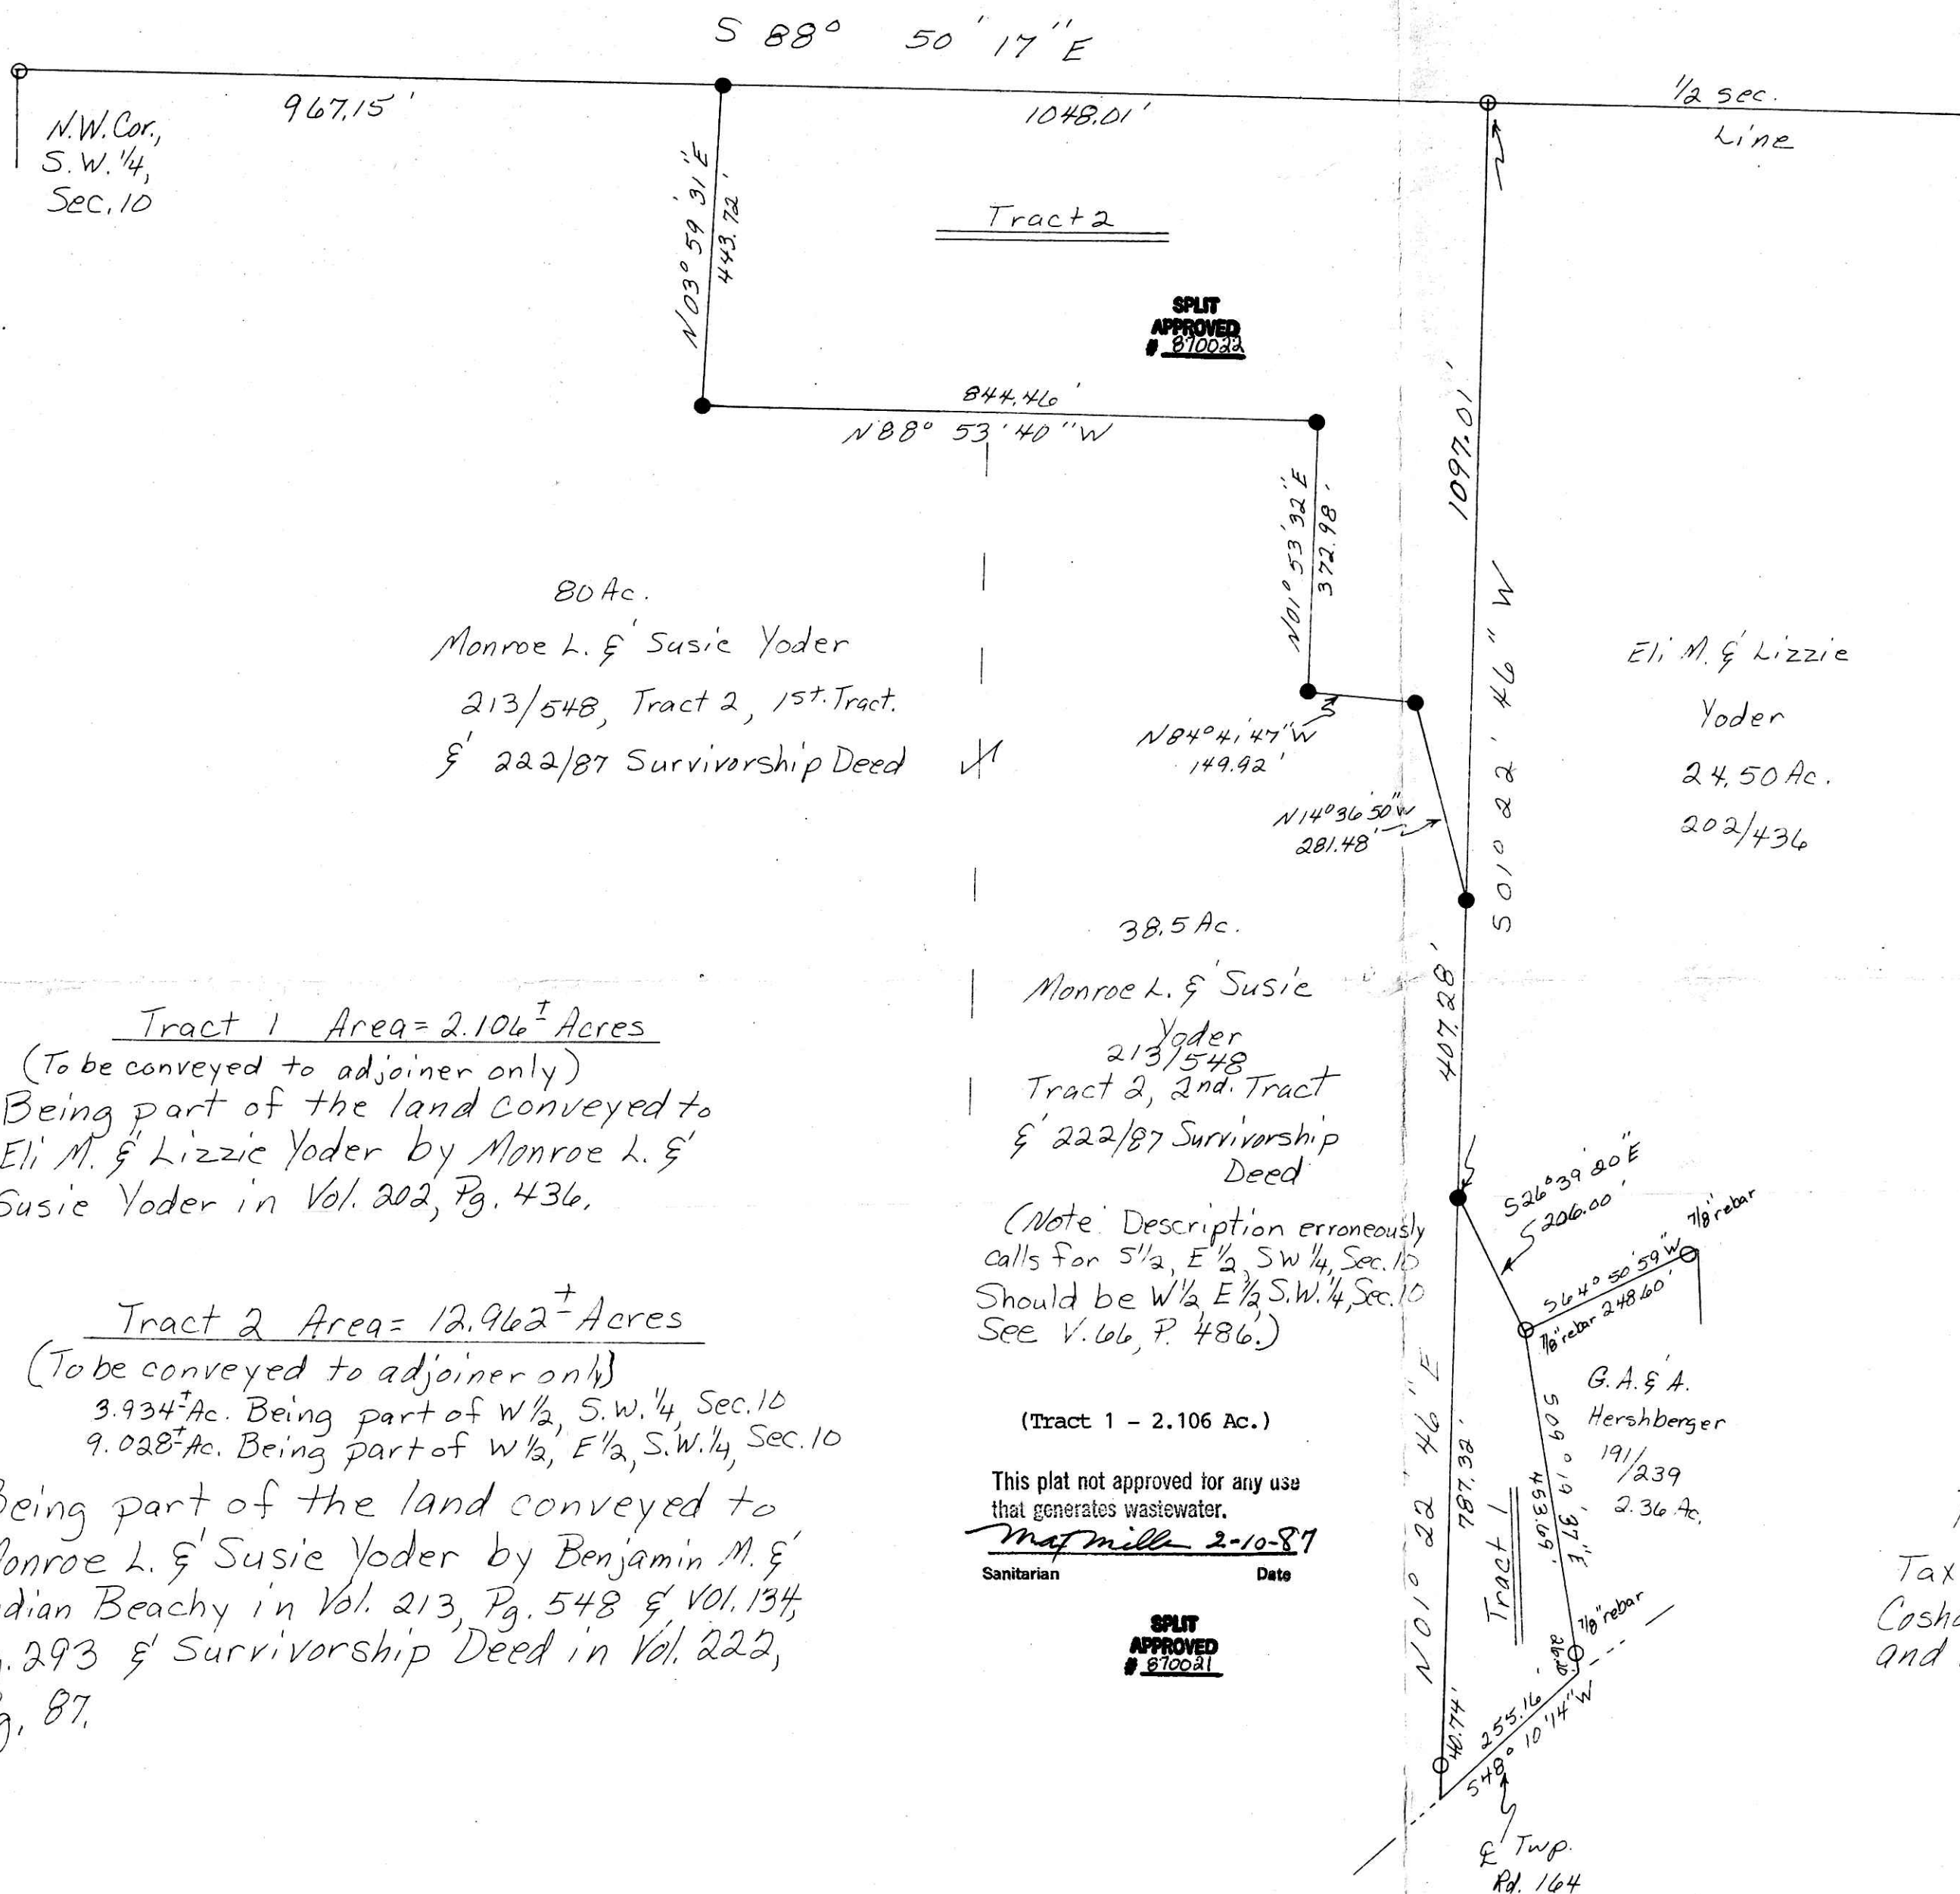 S 88° 50' 17" E
967.15'
1048.01'
1/2 sec.
Line
N.W. Cor.,
S.W. 1/4,
Sec. 10
N03° 59' 31" E
443.72'
Tract 2
SPLIT
APPROVED
# 870022
844.46'
N88° 53' 40" W
1097.01'
S01° 22' 46" W
N01° 53' 32" E
372.98'
N84° 41' 47" W
149.92'
N14° 36' 50" W
281.48'
80 Ac.
Monroe L. & Susie Yoder
213/548, Tract 2, 1st. Tract.
& 222/87 Survivorship Deed
Eli M. & Lizzie
Yoder
24.50 Ac.
202/436
38.5 Ac.
Monroe L. & Susie
Yoder
213/548
Tract 2, 2nd. Tract
& 222/87 Survivorship
Deed
(Note: Description erroneously
calls for S1/2, E1/2, SW1/4, Sec. 10
Should be W1/2, E1/2 S.W.1/4, Sec. 10
See V.66, P. 486.)
407.28'
Tract 1 Area = 2.106± Acres
(To be conveyed to adjoiner only)
Being part of the land conveyed to
Eli M. & Lizzie Yoder by Monroe L. &
Susie Yoder in Vol. 202, Pg. 436.
Tract 2 Area = 12.962± Acres
(To be conveyed to adjoiner only)
3.934± Ac. Being part of W1/2, S.W. 1/4, Sec. 10
9.028± Ac. Being part of W1/2, E1/2, S.W. 1/4, Sec. 10
Being part of the land conveyed to
Monroe L. & Susie Yoder by Benjamin M. &
dian Beachy in Vol. 213, Pg. 548 & Vol. 134,
. 293 & Survivorship Deed in Vol. 222,
g. 87.
(Tract 1 - 2.106 Ac.)
This plat not approved for any use
that generates wastewater.
2-10-87
Sanitarian Date
SPLIT
APPROVED
# 870021
S26° 39' 20" E
206.00'
7/8" rebar
S64° 50' 59" W
7/8" rebar 248.60'
G.A. & A.
Hershberger
191/239
2.36 Ac.
N01° 22' 46" E
787.32'
Tract 1
S09° 19' 37" E
453.69'
7/8" rebar
40.74'
255.16'
S48° 10' 14" W
℄ Twp.
Rd. 164
Tax
Cosho
and